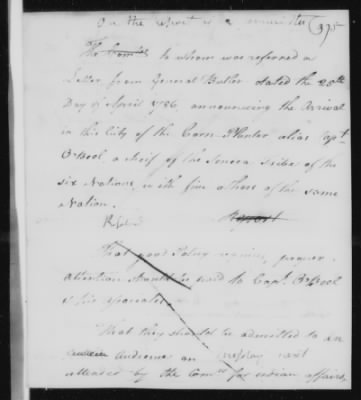 On the report of a committee
375
The Comtee to whom was referred a
Letter from General Butler dated the 28th
Day of April 1786, announcing the Arrival
in this City of the Corn-Planter alias Capt.
OBeel, a chief of the Seneca tribe of the
six Nations, with five others of the same
Nation.
Report
Resolved
That good Policy requires, proper
attention should be paid to Capt. OBeel
& his associates
That they should be admitted to an
audience on next
attended by the Comee for indian affairs,